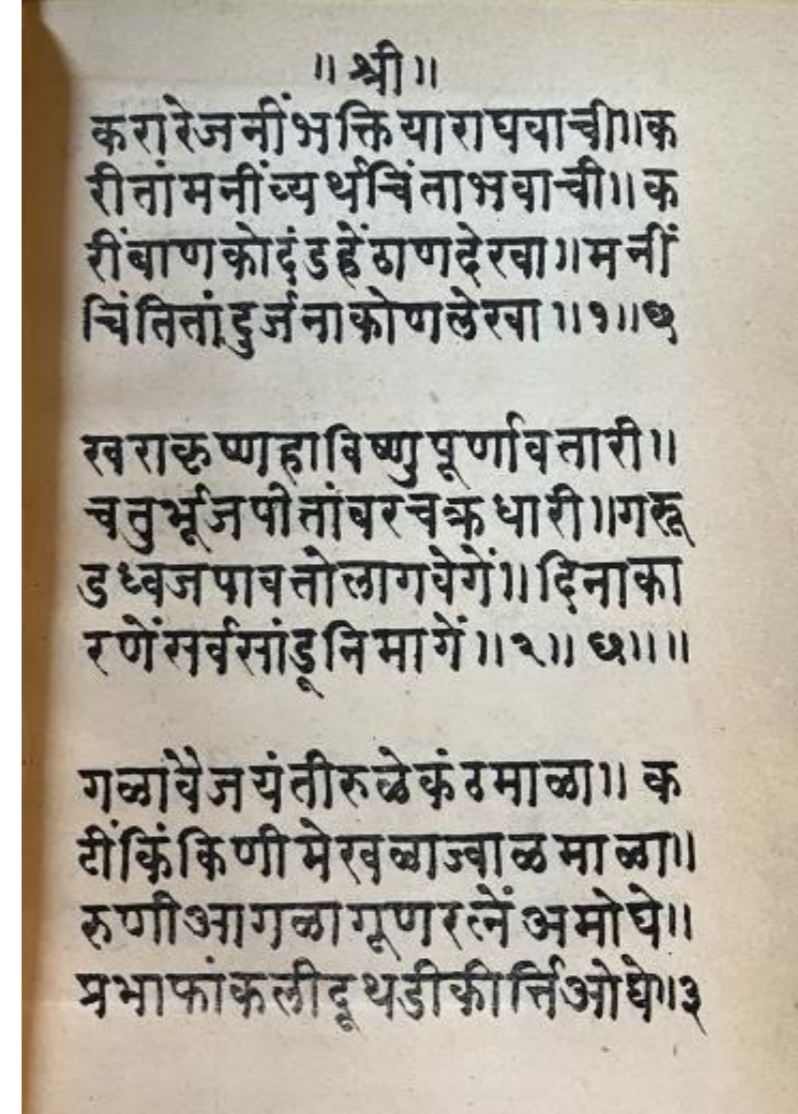 ॥ श्री ॥
करारेजनींभक्तियाराघवाची॥क
रीतांमनींव्यर्थचिंताभवाची॥क
रींबाणकोदंडहेंठाणदेखा॥मनीं
चिंतितांदुर्जनाकोणलेखा॥१॥छ
खराकृष्णहाविष्णुपूर्णावतारी॥
चतुर्भूजपीतांबरचक्रधारी॥गरू
डध्वजपावतोलागवेगें॥दिनाका
रणेंसर्वसांडूनिमागें॥२॥छ॥॥
गळांवैजयंतीरुळेकंठमाळा॥क
टींकिंकिणीमेखळाज्वाळमाळा॥
रुणीआगळागूणरत्नेंअमोघे॥
प्रभाफांकलीदूथडीकीर्त्तिओघे॥३